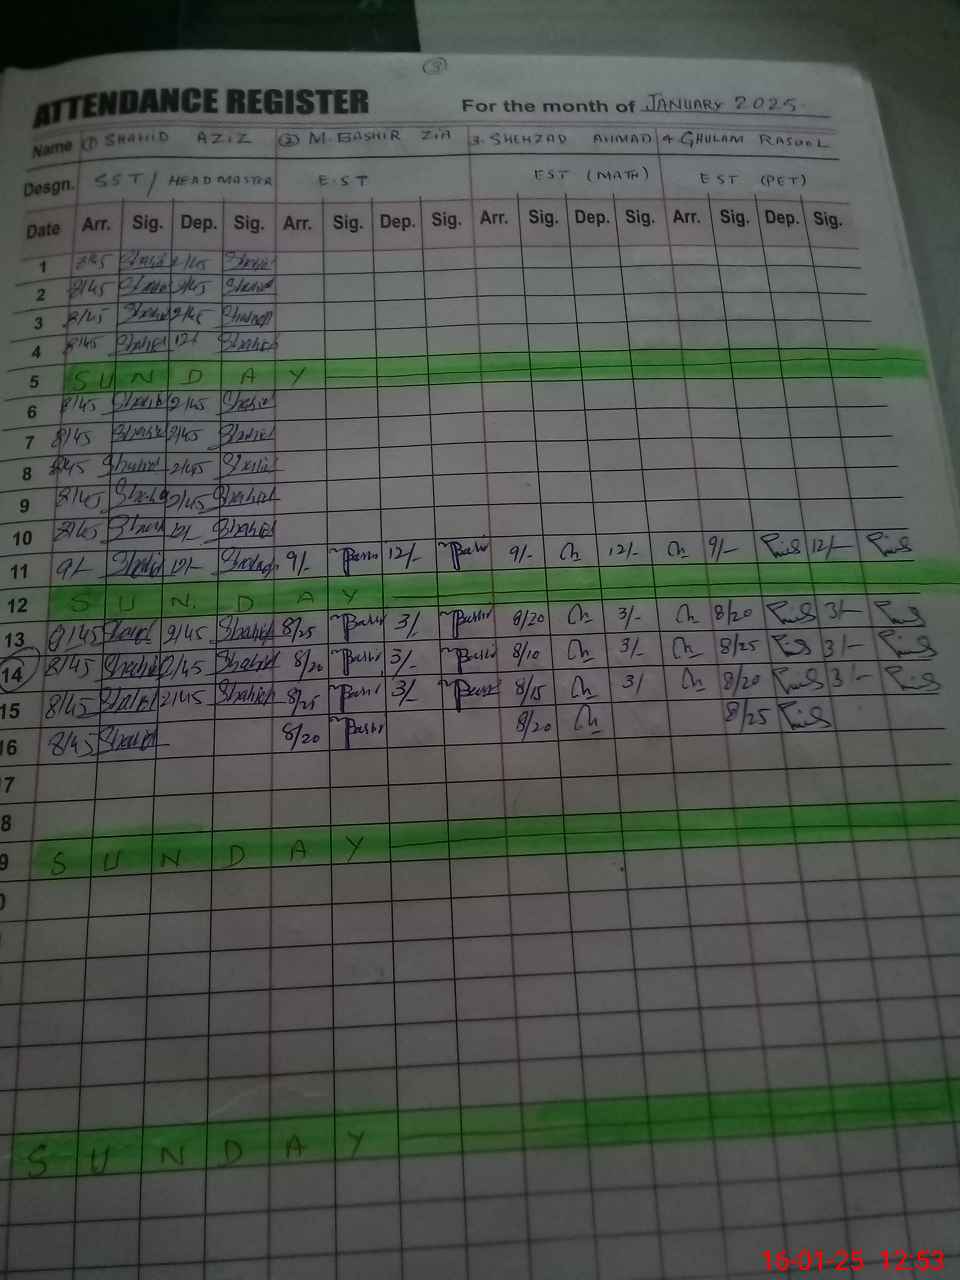 3
ATTENDANCE REGISTER For the month of JANUARY 2025.
Name (1) SHAHID AZIZ (2) M. BASHIR ZIA 3. SHEHZAD AHMAD 4. GHULAM RASOOL
Desgn. SST/HEADMASTER E.ST EST (MATH) EST (PET)
Date Arr. Sig. Dep. Sig. Arr. Sig. Dep. Sig. Arr. Sig. Dep. Sig. Arr. Sig. Dep. Sig.
1 8/45 Shahid 2/45 Shahid
2 8/45 Shahid 2/45 Shahid
3 8/45 Shahid 2/45 Shahid
4 8/45 Shahid 12/- Shahid
5 SUNDAY
6 8/45 Shahid 2/45 Shahid
7 8/45 Shahid 2/45 Shahid
8 8/45 Shahid 2/45 Shahid
9 8/45 Shahid 2/45 Shahid
10 8/45 Shahid 12/- Shahid
11 9/- Shahid 12/- Shahid 9/- Bashir 12/- Bashir 9/- 12/- 9/- 12/-
12 SUN.DAY
13 8/45 Shahid 2/45 Shahid 8/25 Bashir 3/- Bashir 8/20 3/- 8/20 3/-
14 8/45 Shahid 2/45 Shahid 8/20 Bashir 3/- Bashir 8/10 3/- 8/25 3/-
15 8/45 Shahid 2/45 Shahid 8/25 Bashir 3/- Bashir 8/15 3/ 8/20 3/-
16 8/45 Shahid 8/20 Bashir 8/20 8/25
7
8
9 SUNDAY
SUNDAY
16-01-25 12:53